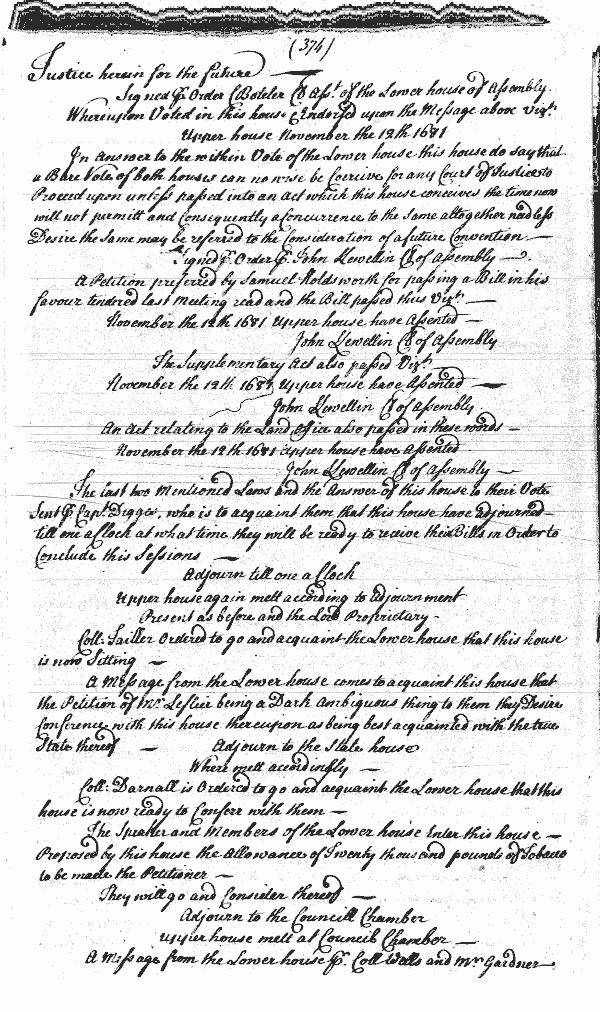 (374)
Justice herein for the future —
Signed p Order C Boteler Cl Asst. of the Lower house of Assembly.
Whereupon Voted in this house Endorsed upon the Message above Vizt.
Upper house November the 12th 1681
In Answer to the within Vote of the Lower house this house do say that
a Bare Vote of both houses can no wise be Coercive for any Court of Justice to
Proceed upon unless passed into an Act which this house conceives the time now
will not permitt and Consequently a Concurrence to the Same altogether needless
Desire the Same may be referred to the Consideration of a future Convention —
Signd p Order p John Llewellin Cl of Assembly —
A Petition preferred by Samuel Holdsworth for passing a Bill in his
favour tendered last Meeting read and the Bill passed thus Vizt. —
November the 12th 1681 Upper house have Assented —
John Llewellin Cl of Assembly
The Supplementary Act also passed Vizt.
November the 12th 1681 Upper house have Assented —
John Llewellin Cl of Assembly
An Act relating to the Land Office also passed in these words —
November the 12th 1681 Upper house have Assented
John Llewellin Cl of Assembly —
The last two Mentioned Laws and the Answer of this house to their Vote
Sent p Capt. Digges, who is to acquaint them that this house have adjourned
till one a Clock at what time they will be ready to receive their Bills in Order to
Conclude this Sessions —
Adjourn till one a Clock
Upper house again mett according to adjournment
Present as before and the Lord Proprietary -
Coll. Tailler Ordered to go and acquaint the Lower house that this house
is now Sitting —
A Message from the Lower house comes to acquaint this house that
the Petition of Mr. Lesleir being a Dark Ambiguous thing to them they Desire
Conference with this house thereupon as being best acquainted with the true
State thereof — Adjourn to the State house
Where mett accordingly —
Coll: Darnall is Ordered to go and acquaint the Lower house that this
house is now ready to Conferr with them —
The Speaker and Members of the Lower house Enter this house —
Proposed by this house the Allowance of Twenty thousand pounds of Tobacco
to be made the Petitioner —
They will go and Consider thereof —
Adjourn to the Councill Chamber
Upper house mett at Council Chamber —
A Message from the Lower house p. Coll Wells and Mr Gardner —